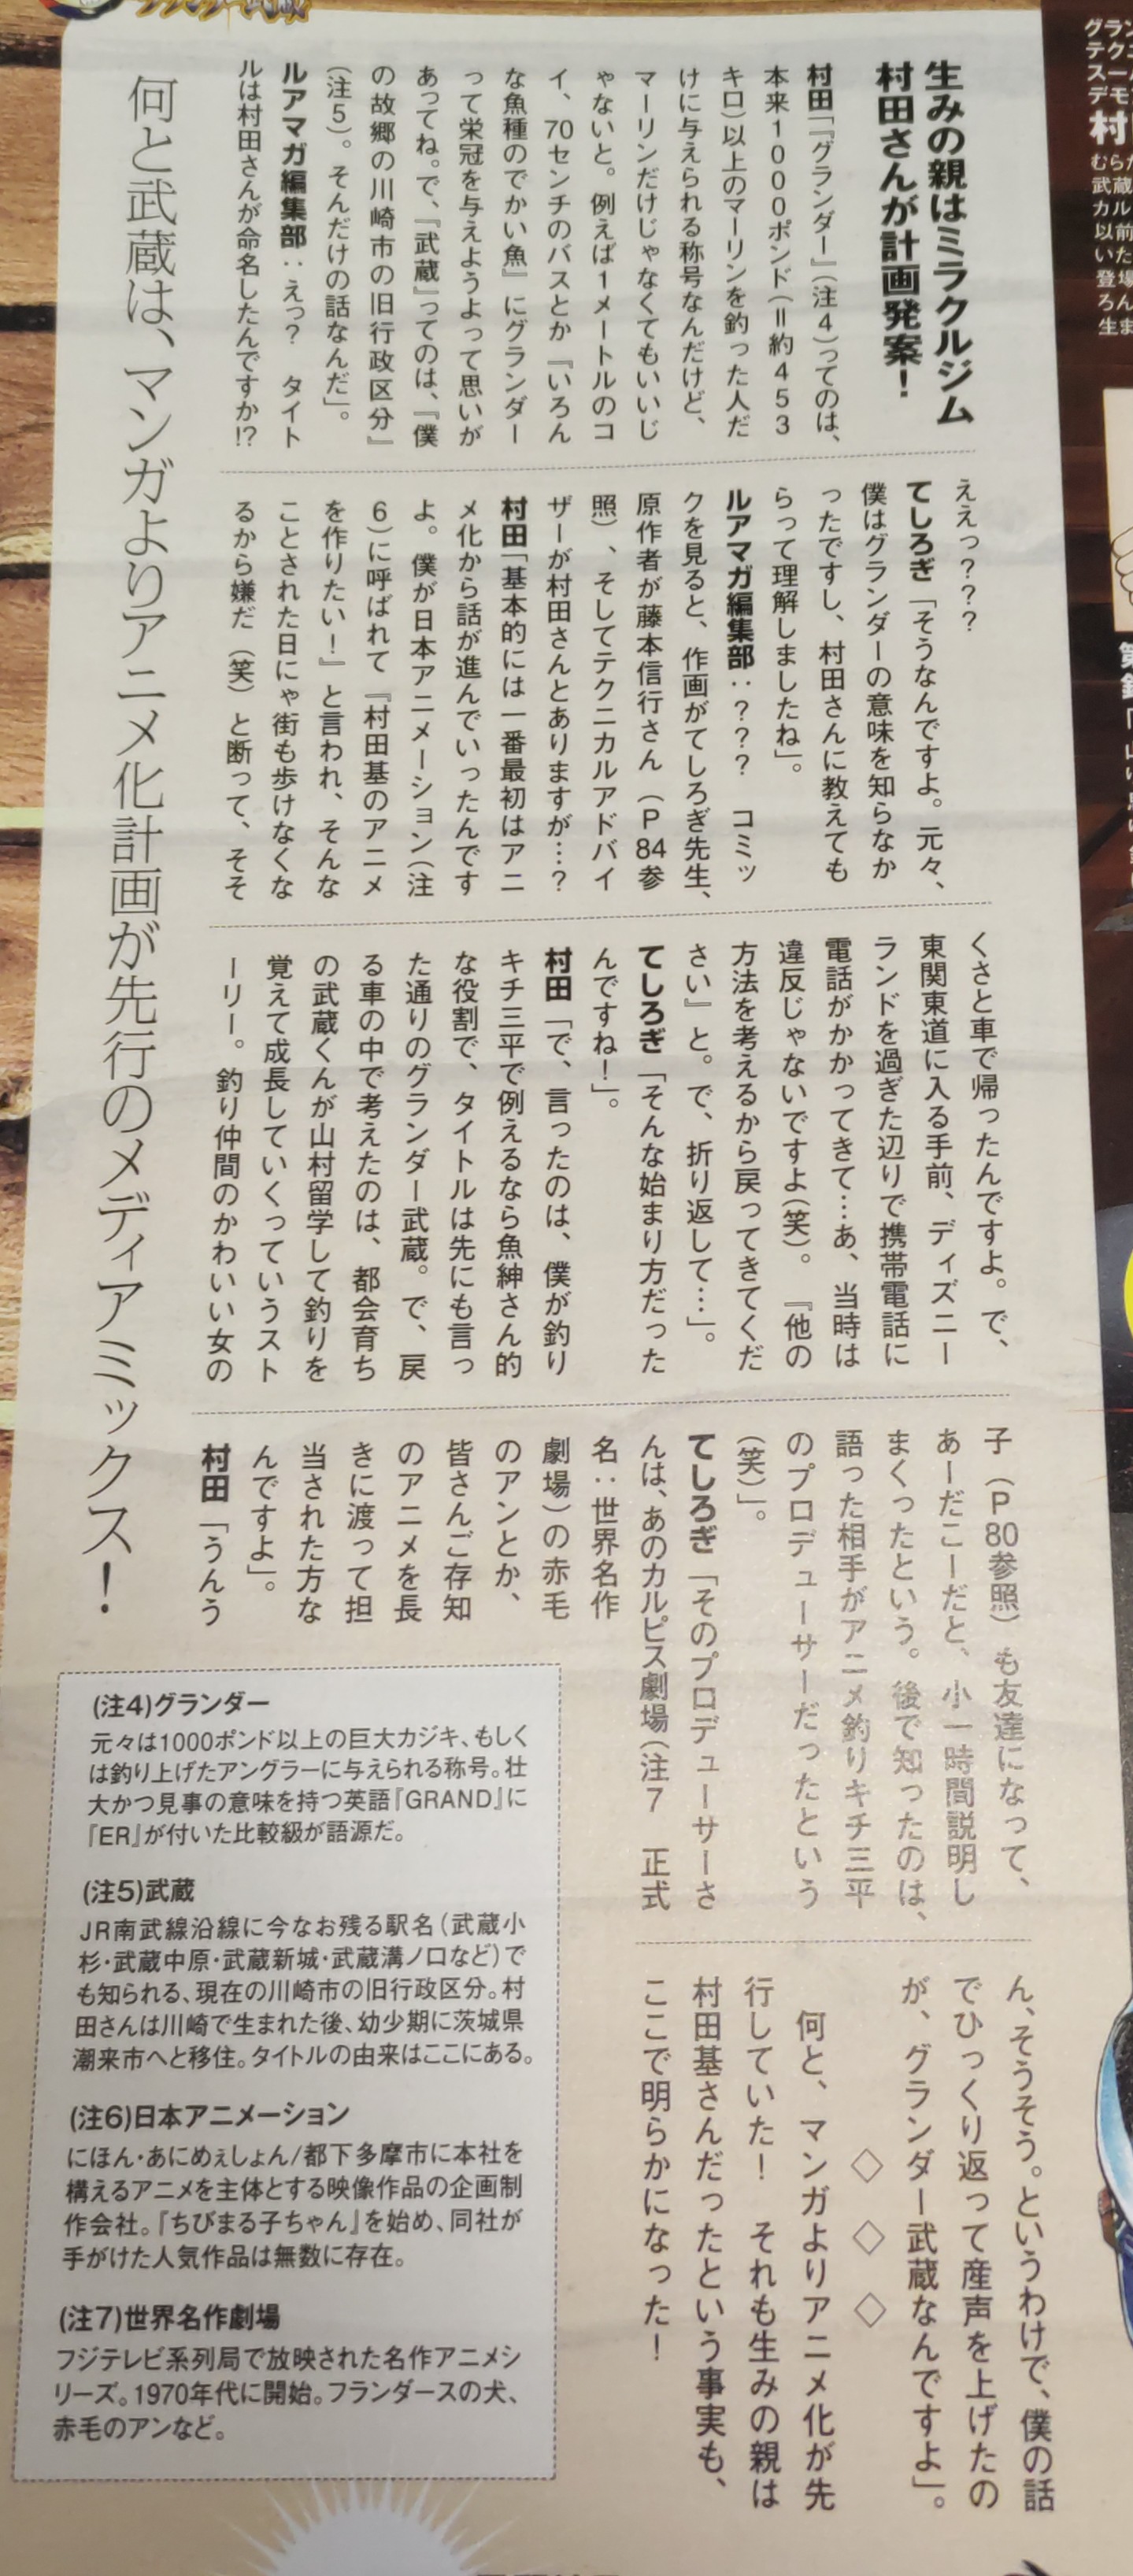 生みの親はミラクルジム
村田さんが計画発案!
村田「『グランダー』(注4)ってのは、
本来1000ポンド(=約453
キロ)以上のマーリンを釣った人だ
けに与えられる称号なんだけど、
マーリンだけじゃなくてもいいじ
ゃないと。例えば1メートルのコ
イ、70センチのバスとか『いろん
な魚種のでかい魚』にグランダー
って栄冠を与えようよって思いが
あってね。で、『武蔵』ってのは、『僕
の故郷の川崎市の旧行政区分』
(注5)。そんだけの話なんだ」。
ルアマガ編集部:えっ? タイト
ルは村田さんが命名したんですか!?
ええっ???
てしろぎ「そうなんですよ。元々、
僕はグランダーの意味を知らなか
ったですし、村田さんに教えても
らって理解しましたね」。
ルアマガ編集部:??? コミッ
クを見ると、作画がてしろぎ先生、
原作者が藤本信行さん(P84参
照)、そしてテクニカルアドバイ
ザーが村田さんとありますが…?
村田「基本的には一番最初はアニ
メ化から話が進んでいったんです
よ。僕が日本アニメーション(注
6)に呼ばれて『村田基のアニメ
を作りたい!』と言われ、そんな
ことされた日にゃ街も歩けなくな
るから嫌だ(笑)と断って、そそ
くさと車で帰ったんですよ。で、
東関東道に入る手前、ディズニー
ランドを過ぎた辺りで携帯電話に
電話がかかってきて…あ、当時は
違反じゃないですよ(笑)。『他の
方法を考えるから戻ってきてくだ
さい』と。で、折り返して…」。
てしろぎ「そんな始まり方だった
んですね!」。
村田「で、言ったのは、僕が釣り
キチ三平で例えるなら魚紳さん的
な役割で、タイトルは先にも言っ
た通りのグランダー武蔵。で、戻
る車の中で考えたのは、都会育ち
の武蔵くんが山村留学して釣りを
覚えて成長していくっていうスト
ーリー。釣り仲間のかわいい女の
子(P80参照)も友達になって、
あーだこーだと、小一時間説明し
まくったという。後で知ったのは、
語った相手がアニメ釣りキチ三平
のプロデューサーだったという
(笑)」。
てしろぎ「そのプロデューサーさ
んは、あのカルピス劇場(注7 正式
名:世界名作
劇場)の赤毛
のアンとか、
皆さんご存知
のアニメを長
きに渡って担
当された方な
んですよ」。
村田「うんう
ん、そうそう。というわけで、僕の話
でひっくり返って産声を上げたの
が、グランダー武蔵なんですよ」。
◇ ◇ ◇
何と、マンガよりアニメ化が先
行していた! それも生みの親は
村田基さんだったという事実も、
ここで明らかになった!
何と武蔵は、マンガよりアニメ化計画が先行のメディアミックス!
(注4)グランダー
元々は1000ポンド以上の巨大カジキ、もしく
は釣り上げたアングラーに与えられる称号。壮
大かつ見事の意味を持つ英語『GRAND』に
『ER』が付いた比較級が語源だ。
(注5)武蔵
JR南武線沿線に今なお残る駅名(武蔵小
杉・武蔵中原・武蔵新城・武蔵溝ノ口など)で
も知られる、現在の川崎市の旧行政区分。村
田さんは川崎で生まれた後、幼少期に茨城県
潮来市へと移住。タイトルの由来はここにある。
(注6)日本アニメーション
にほん・あにめぇしょん/都下多摩市に本社を
構えるアニメを主体とする映像作品の企画制
作会社。『ちびまる子ちゃん』を始め、同社が
手がけた人気作品は無数に存在。
(注7)世界名作劇場
フジテレビ系列局で放映された名作アニメシ
リーズ。1970年代に開始。フランダースの犬、
赤毛のアンなど。